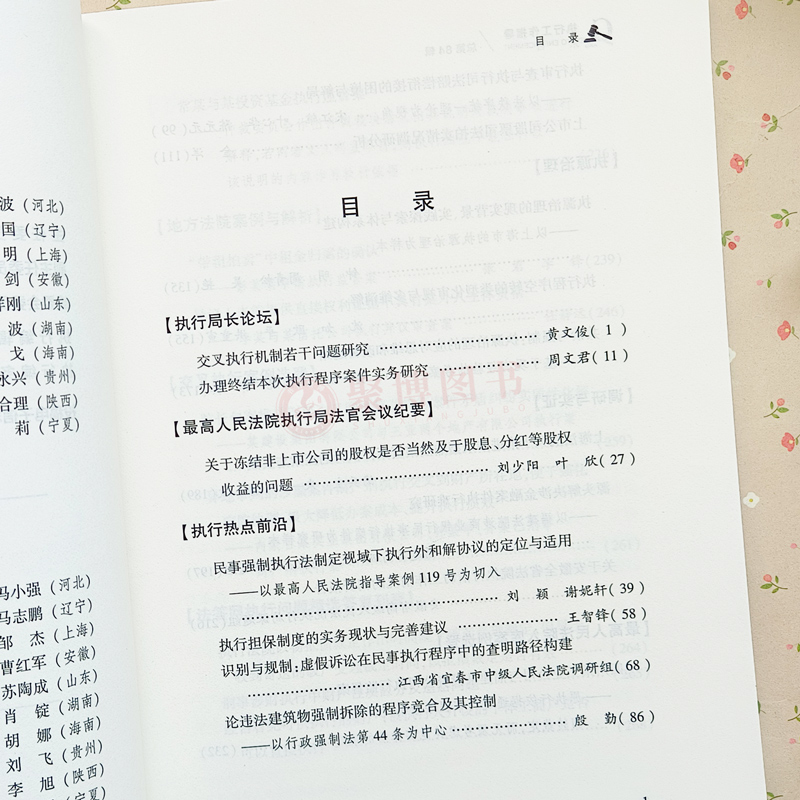 波（河北）
国（辽宁）
明（上海）
剑（安徽）
刚（山东）
波（湖南）
戈（海南）
永兴（贵州）
合理（陕西）
莉（宁夏）
马小强（河北）
马志鹏（辽宁）
邹 杰（上海）
曹红军（安徽）
苏陶成（山东）
肖 锭（湖南）
胡 娜（海南）
刘 飞（贵州）
李 旭（陕西）
（宁夏）
目 录
目 录
【执行局长论坛】
交叉执行机制若干问题研究 …………………… 黄文俊（1）
办理终结本次执行程序案件实务研究 …………………… 周文君（11）
【最高人民法院执行局法官会议纪要】
关于冻结非上市公司的股权是否当然及于股息、分红等股权
收益的问题 …………………… 刘少阳 叶 欣（27）
【执行热点前沿】
民事强制执行法制定视域下执行外和解协议的定位与适用
——以最高人民法院指导案例119号为切入
…………………… 刘 颖 谢妮轩（39）
执行担保制度的实务现状与完善建议 …………………… 王智锋（58）
识别与规制：虚假诉讼在民事执行程序中的查明路径构建
…………………… 江西省宜春市中级人民法院调研组（68）
论违法建筑物强制拆除的程序竞合及其控制
——以行政强制法第44条为中心 …………………… 殷 勤（86）
1
聚博图书